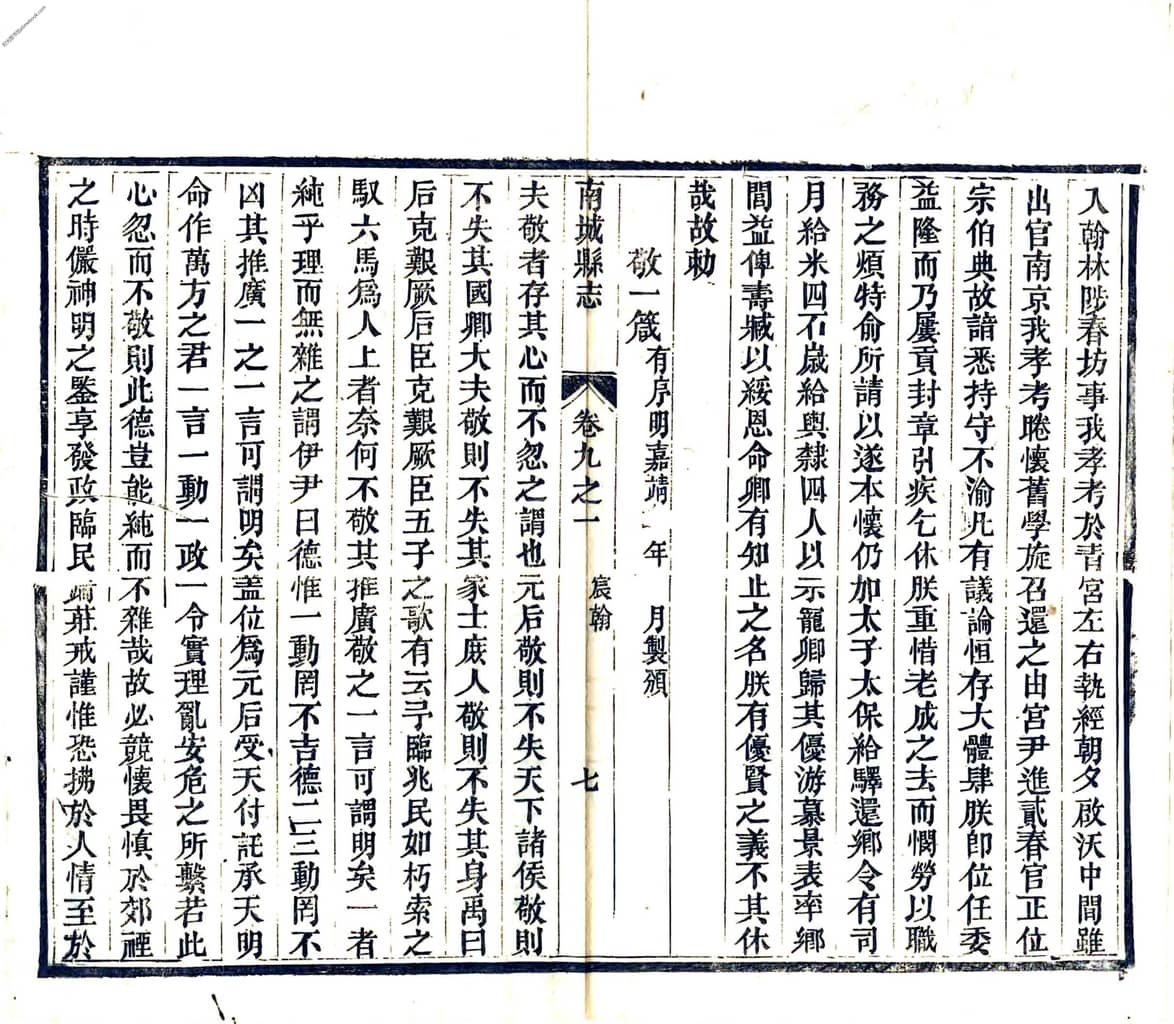 入翰林陟春坊事我孝考於青宮左右執經朝夕啟沃中間雖
出官南京我孝考睠懷舊學旋召還之由宮尹進貳春官正位
宗伯典故諳悉持守不渝凡有議論恒存大體肆朕卽位任委
益隆而乃屢貢封章引疾乞休朕重惜老成之去而憫勞以職
務之煩特俞所請以遂本懷仍加太子太保給驛還鄉令有司
月給米四石歲給輿隸四人以示寵卿歸其優游暮景表率鄉
閭益俾壽臧以綏恩命卿有知止之名朕有優賢之義不其休
哉故勅
敬一箴有序明嘉靖 年 月製頒
南城縣志 卷九之一 宸翰 七
夫敬者存其心而不忽之謂也元后敬則不失天下諸侯敬則
不失其國卿大夫敬則不失其家士庶人敬則不失其身禹曰
后克艱厥后臣克艱厥臣五子之歌有云予臨兆民如朽索之
馭六馬爲人上者奈何不敬其推廣敬之一言可謂明矣一者
純乎理而無雜之謂伊尹曰德惟一動罔不吉德二三動罔不
凶其推廣一之一言可謂明矣蓋位爲元后受天付託承天明
命作萬方之君一言一動一政一令實理亂安危之所繫若此
心忽而不敬則此德豈能純而不雜哉故必競懷畏慎於郊禋
之時儼神明之鑒享發政臨民端莊戒謹惟恐拂於人情至於